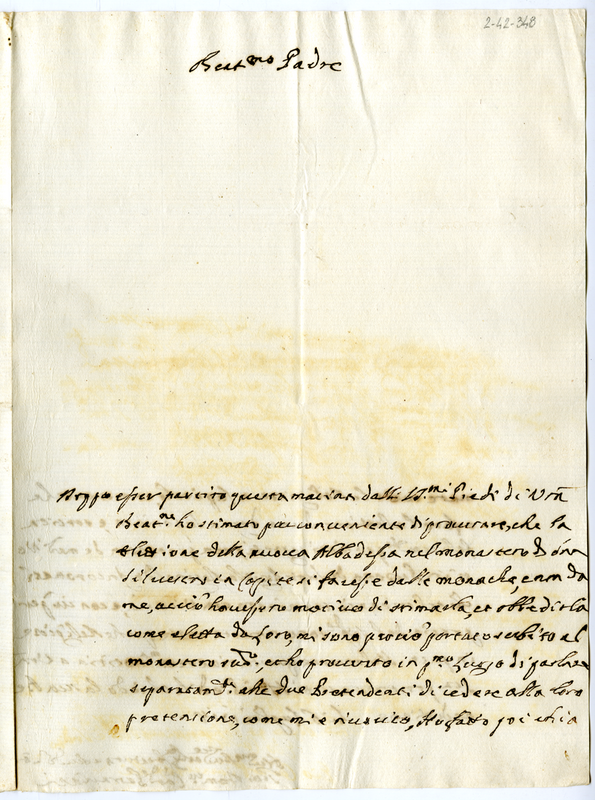 2-42-348
Beat.mo Padre
Doppo esser partito questa matina dalli SS.mi Piedi di Vrā
Beat.ne ho stimato più conveniente di procurare, che la
elettione della nuova Abbadessa nel monastero di
Silvestro in Capite si facesse dalle monache, e non da
me, acciò havessero motivo di stimarla, et obbedirla
come eletta da loro, mi sono perciò portato subito al
monastero sud.o, et ho procurato in p.mo luogo di parlare
separatam.te alle due Pretendenti di cedere alla loro
pretensione, come mi è riuscito, Ho fatto poi